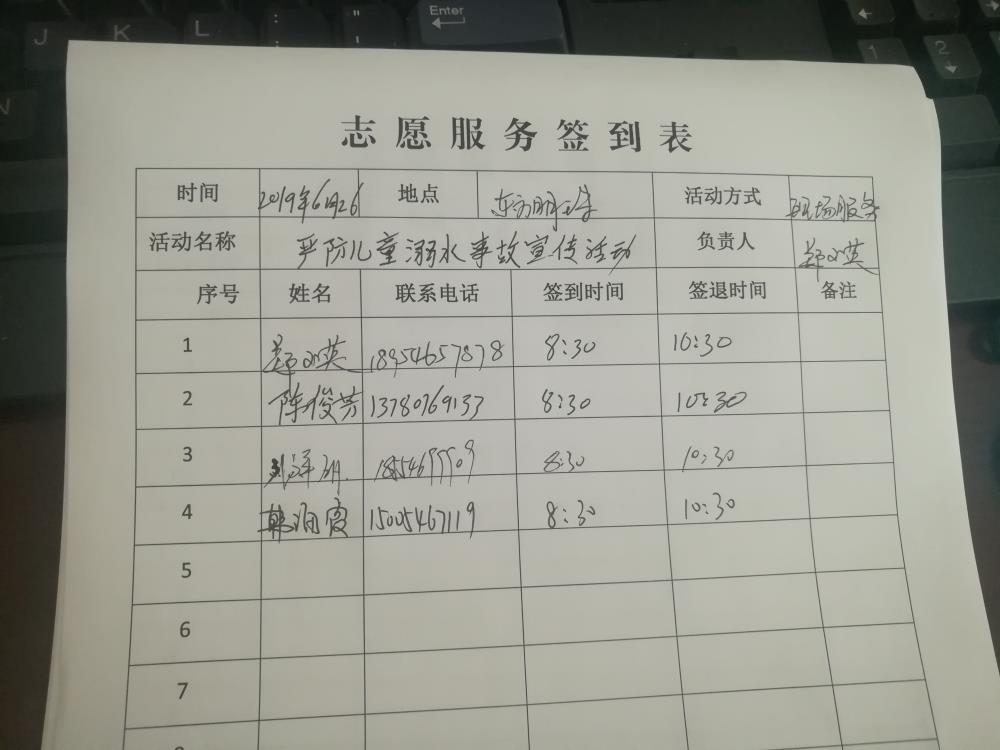 Enter
J K L
1 2
志愿服务签到表
时间 2019年6月26 地点 东方明珠 活动方式 现场服务
活动名称 严防儿童溺水事故宣传活动 负责人 郑英
序号 姓名 联系电话 签到时间 签退时间 备注
1 郑英 18954657878 8:30 10:30
2 陈俊芳 13780769133 8:30 10:30
3 8:30 10:30
4 韩润霞 15005467119 8:30 10:30
5
6
7